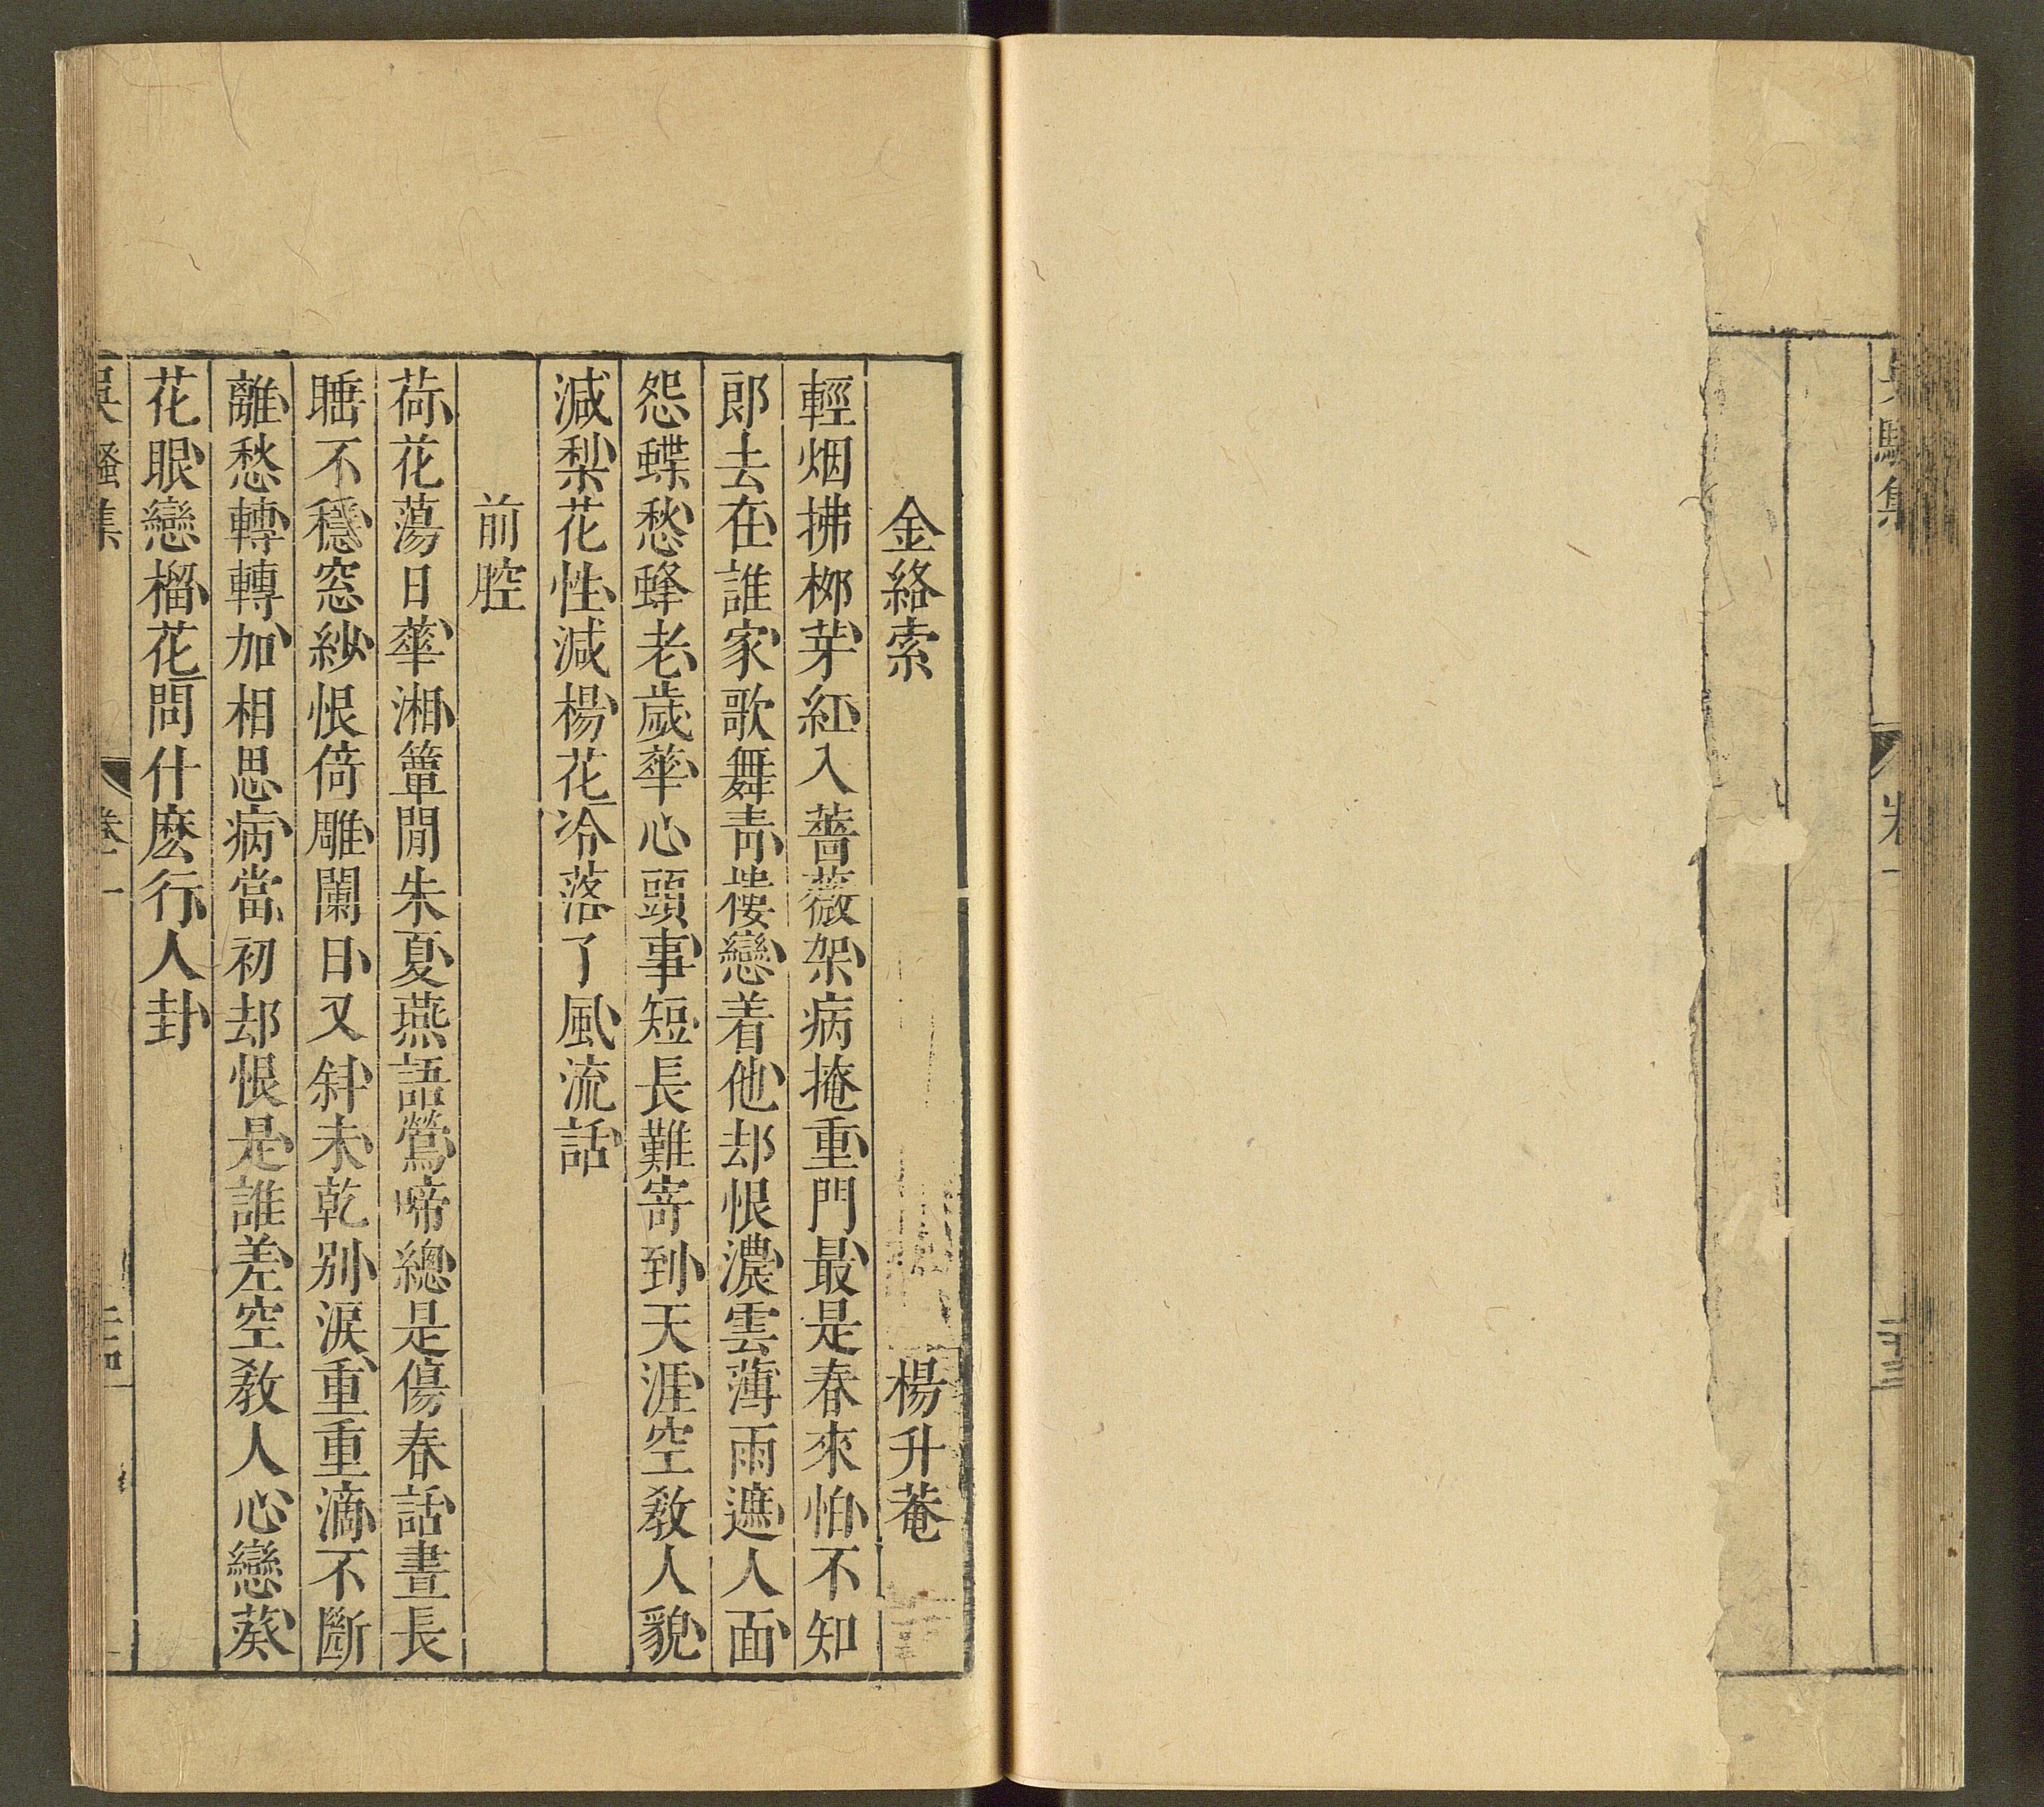 集
卷一
二十三
金絡索 楊升菴
輕烟拂桞芽紅入薔薇架病掩重門最是春來怕不知
郎去在誰家歌舞青樓戀着他却恨濃雲薄雨遮人面
怨蝶愁蜂老歲華心頭事短長難寄到天涯空教人貌
減梨花性減楊花冷落了風流話
前腔
荷花蕩日華湘簟閒朱夏燕語鶯啼總是傷春話晝長
睡不穩窓紗恨倚雕闌日又斜未乾別淚重重滴不斷
離愁轉轉加相思病當初却恨是誰差空教人心戀葵
花眼戀榴花問什麽行人卦
吳騷集
卷一
二十四